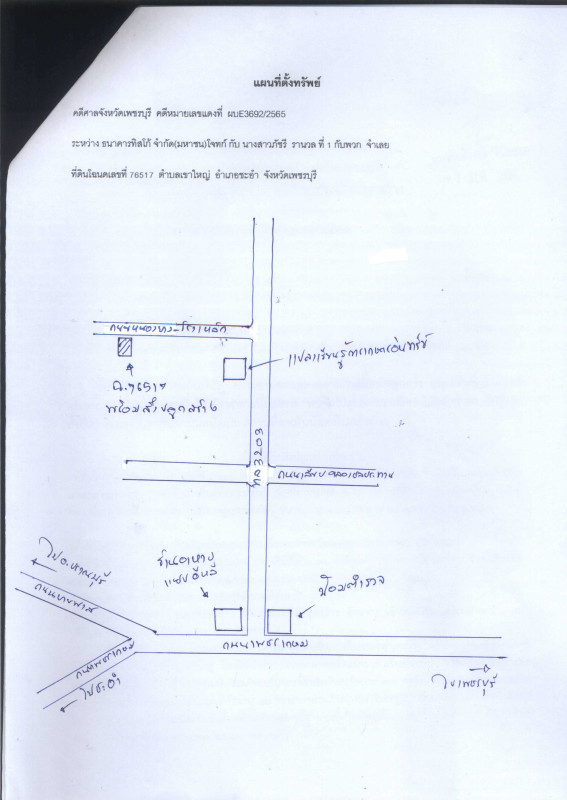 แผนที่ตั้งทรัพย์
คดีศาลจังหวัดเพชรบุรี คดีหมายเลขแดงที่ ผบE3692/2565
ระหว่าง ธนาคารทิสโก้ จำกัด(มหาชน)โจทก์ กับ นางสาวภัชรี รานวล ที่ 1 กับพวก จำเลย
ที่ดินโฉนดเลขที่ 76517 ตำบลเขาใหญ่ อำเภอชะอำ จังหวัดเพชรบุรี
แปลงเรียนรู้การเกษตรอินทรีย์
ฉ.76517
พร้อมสิ่งปลูกสร้าง
ทล 3203
ถนนเลียบคลองชลประทาน
ร้านอาหาร
ป้อมตำรวจ
ถนนเพชรเกษม
ถนนเพชรเกษม
ไปชะอำ
ไปเพชรบุรี